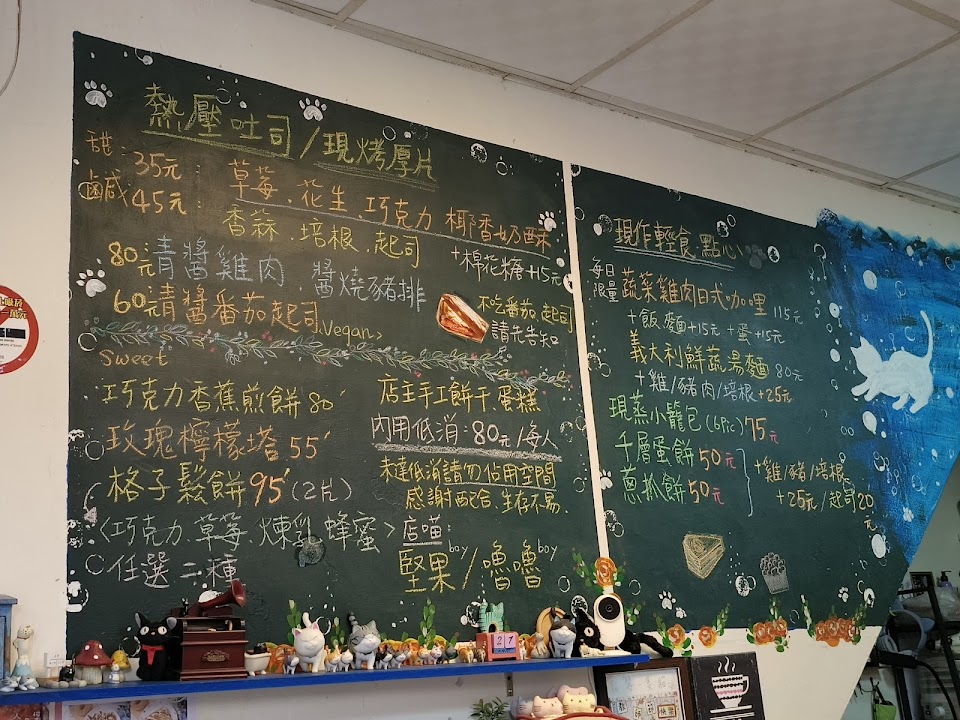 熱壓吐司/現烤厚片
甜: 35元: 草莓、花生、巧克力 椰香奶酥
鹹 45元: 香蒜、培根、起司
+棉花糖+15元
80元 青醬雞肉 醬燒豬排
60元 青醬番茄起司 Vegan
不吃番茄、起司
請先告知
Sweet
巧克力香蕉煎餅 80
玫瑰檸檬塔 55
格子鬆餅 95 (2片)
<巧克力、草莓、煉乳、蜂蜜>
任選二種
店主手工餅干、蛋糕
內用低消:80元/每人
未達低消請勿佔用空間
感謝配合、生存不易.
店喵:
堅果boy/嚕嚕boy
現作輕食、點心
每日限量 蔬菜雞肉日式咖哩 115元
+飯、麵+15元 +蛋+15元
義大利鮮蔬湯麵 80元
+雞/豬肉/培根+25元
現蒸小籠包(6Pic)75元
千層蛋餅50元
蔥抓餅50元
+雞/豬/培根
+25元/起司20元
27